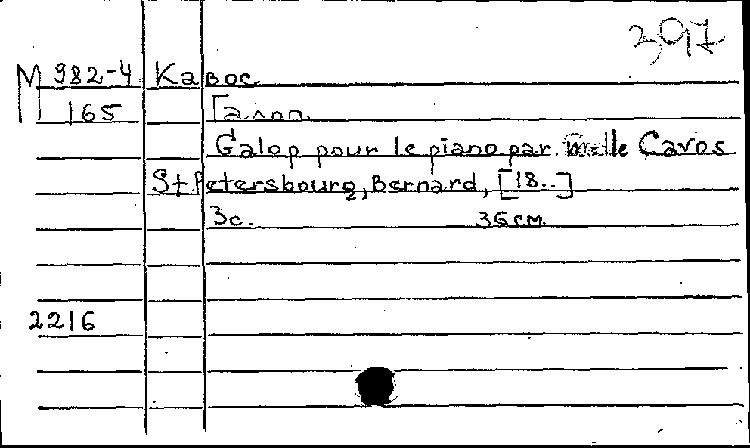 397
М 982-4 Кавос
165 Галоп.
Galop pour le piano par Melle Cavos
St Petersbourg, Bernard, [18..]
3с. 35см.
2216